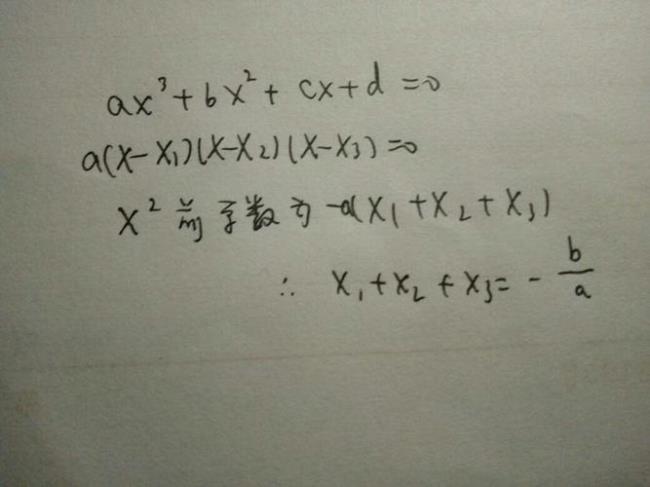 ax³+bx²+cx+d=0
a(x-x₁)(x-x₂)(x-x₃)=0
x²前系数为-a(x₁+x₂+x₃)
∴ x₁+x₂+x₃=-b/a